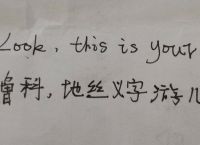 Look, this is your
曾科,地丝义字游儿